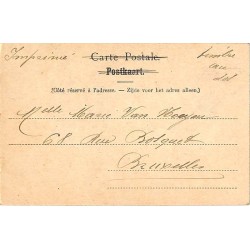 Imprimé
Carte Postale.
Postkaart.
timbre
au
dos
(Côté réservé à l'adresse. — Zijde voor het adres alleen.)
Melle Marie Van
68 rue Bolquet
Bruxelles